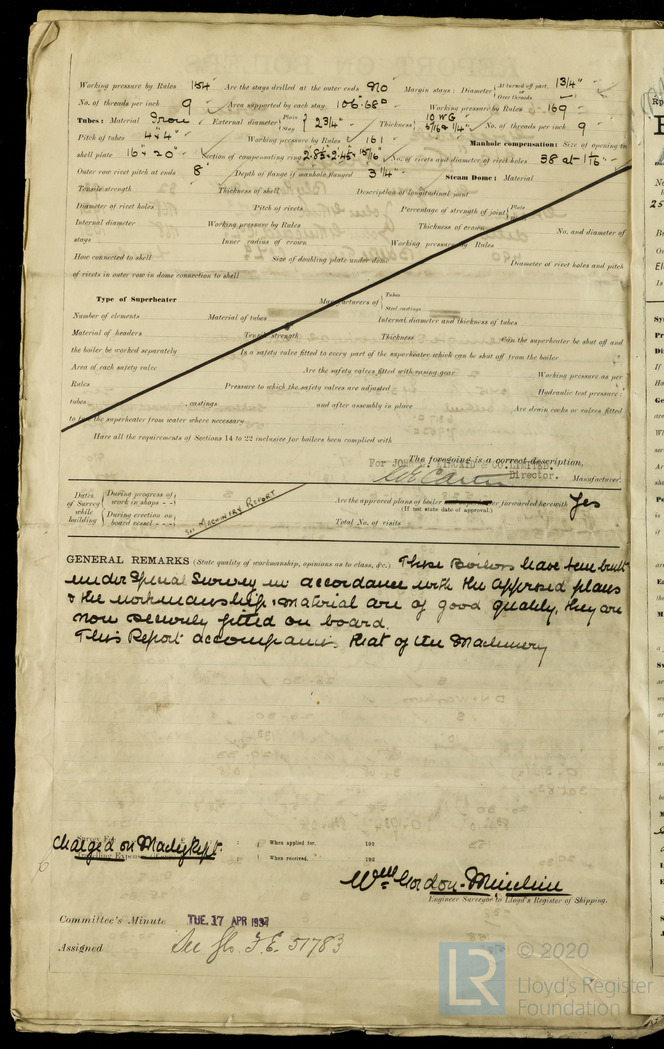 Working pressure by Rules 154 Are the stays drilled at the outer ends No Margin stays: Diameter { At turned off part, or Over threads 1 3/4"
No. of threads per inch 9 Area supported by each stay Working pressure by Rules 169
Tubes: Material Iron External diameter { Plain Stay } 2 3/4" Thickness { 10 WG 5/16 & 1/4" No. of threads per inch 9
Pitch of tubes 4 x 4" Working pressure by Rules 161 Manhole compensation: Size of opening in
shell plate 16" x 20" Section of compensating ring No. of rivets and diameter of rivet holes 38 at
Outer row rivet pitch at ends 8" Depth of flange if manhole flanged 3 1/4" Steam Dome: Material
Tensile strength Thickness of shell Description of longitudinal joint
Diameter of rivet holes Pitch of rivets Percentage of strength of joint { Plate
Internal diameter Working pressure by Rules Thickness of crown No. and diameter of
stays Inner radius of crown Working pressure by Rules
How connected to shell Size of doubling plate under dome Diameter of rivet holes and pitch
of rivets in outer row in dome connection to shell
Type of Superheater Manufacturers of { Tubes Steel castings
Number of elements Material of tubes Internal diameter and thickness of tubes
Material of headers Tensile strength Thickness Can the superheater be shut off and
the boiler be worked separately Is a safety valve fitted to every part of the superheater which can be shut off from the boiler
Area of each safety valve Are the safety valves fitted with easing gear Working pressure as per
Rules Pressure to which the safety valves are adjusted Hydraulic test pressure:
tubes castings and after assembly in place Are drain cocks or valves fitted
to free the superheater from water where necessary
Have all the requirements of Sections 14 to 22 inclusive for boilers been complied with
The foregoing is a correct description,
For JOHN G. KINCAID & CO. LIMITED.
Director. Manufacturer.
Dates of Survey while building { During progress of work in shops - - During erection on board vessel - - - } See Machinery Report Are the approved plans of boiler forwarded herewith Yes
(If not state date of approval.)
Total No. of visits
GENERAL REMARKS (State quality of workmanship, opinions as to class, &c.) These Boilers have been built
under Special Survey in accordance with the approved plans
& the workmanship & material are of good quality, they are
now securely fitted on board.
This Report accompanies that of the Machinery
Survey Fee When applied for, 192
Charged on Machy Rept.
Travelling Expenses When received, 192
Wm Gordon-Minchin
Engineer Surveyor to Lloyd's Register of Shipping.
Committee's Minute TUE. 17 APR 1934
Assigned See Gls. F.E. 51783
LR © 2020
Lloyd's Register
Foundation